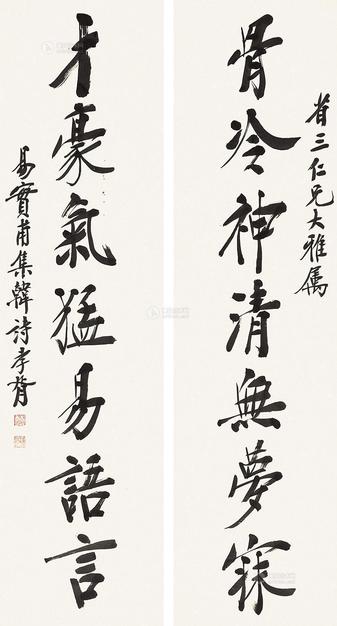 省三仁兄大雅属
骨冷神清無夢寐
才豪氣猛易語言
易實甫集韓詩孝胥